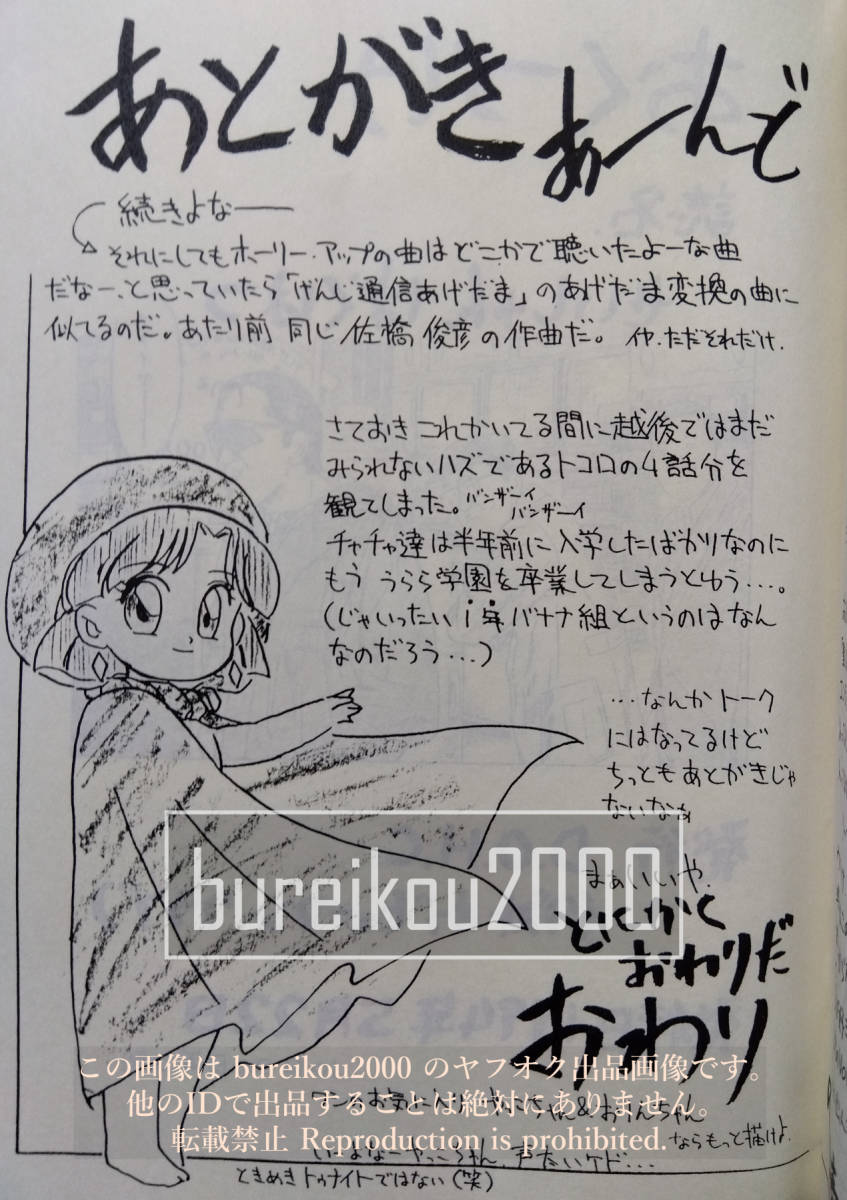 あとがき あーんど
続きよなー
それにしてもホーリー・アップの曲はどこかで聴いたよーな曲
だなー、と思っていたら「げんじ通信あげだま」のあげだま変換の曲に
似てるのだ。あたり前 同じ佐橋俊彦の作曲だ。イヤ、ただそれだけ.
さておき これかいてる間に越後ではまだ
みられないハズであるトコロの4話分を
観てしまった。バンザーイ バンザーイ
チャチャ達は半年前に入学したばかりなのに
もう うらら学園を卒業してしまうとゆう…。
(じゃいったい1年バナナ組というのはなん
なのだろう…)
…なんかトーク
にはなってるけど
ちっともあとがきじゃ
ないなぁ
まぁいいや.
とにかく
おわりだ
おわり
bureikou2000
この画像は bureikou2000 のヤフオク出品画像です。
他のIDで出品することは絶対にありません。
転載禁止 Reproduction is prohibited.
ちゃん&おりんちゃん
ならもっと描けよ.
いーよなーやっこちゃん.声たいケド…
ときめきトゥナイトではない(笑)